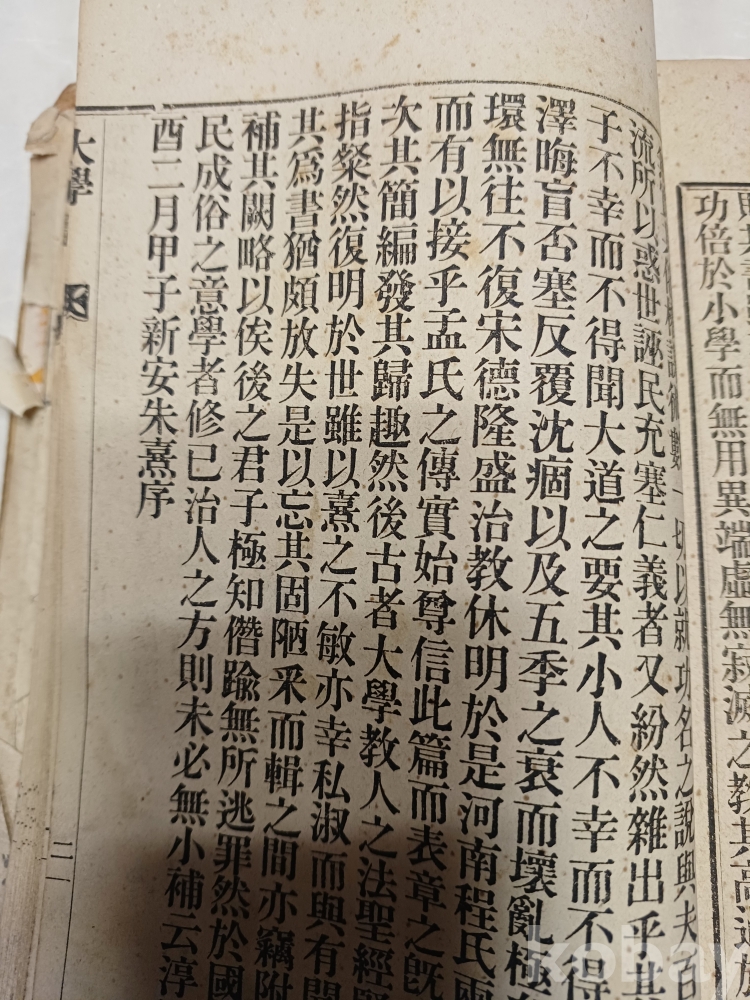 功倍於小學而無用異端虛無寂滅之教其高過於
權謀術數一切以就功名之說與夫百
流所以惑世誣民充塞仁義者又紛然雜出乎其
子不幸而不得聞大道之要其小人不幸而不得
澤晦盲否塞反覆沈痼以及五季之衰而壞亂極
環無往不復宋德隆盛治教休明於是河南程氏兩
而有以接乎孟氏之傳實始尊信此篇而表章之既
次其簡編發其歸趣然後古者大學教人之法聖經賢
指粲然復明於世雖以熹之不敏亦幸私淑而與有聞
其爲書猶頗放失是以忘其固陋釆而輯之間亦竊附
補其闕略以俟後之君子極知僭踰無所逃罪然於國
民成俗之意學者修已治人之方則未必無小補云淳
酉二月甲子新安朱熹序
大學
序
二
kobay